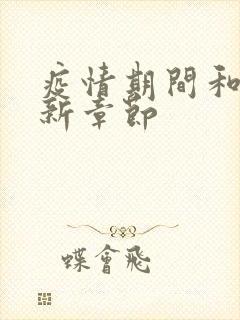 疫情期間和
新章節
蝶會飛